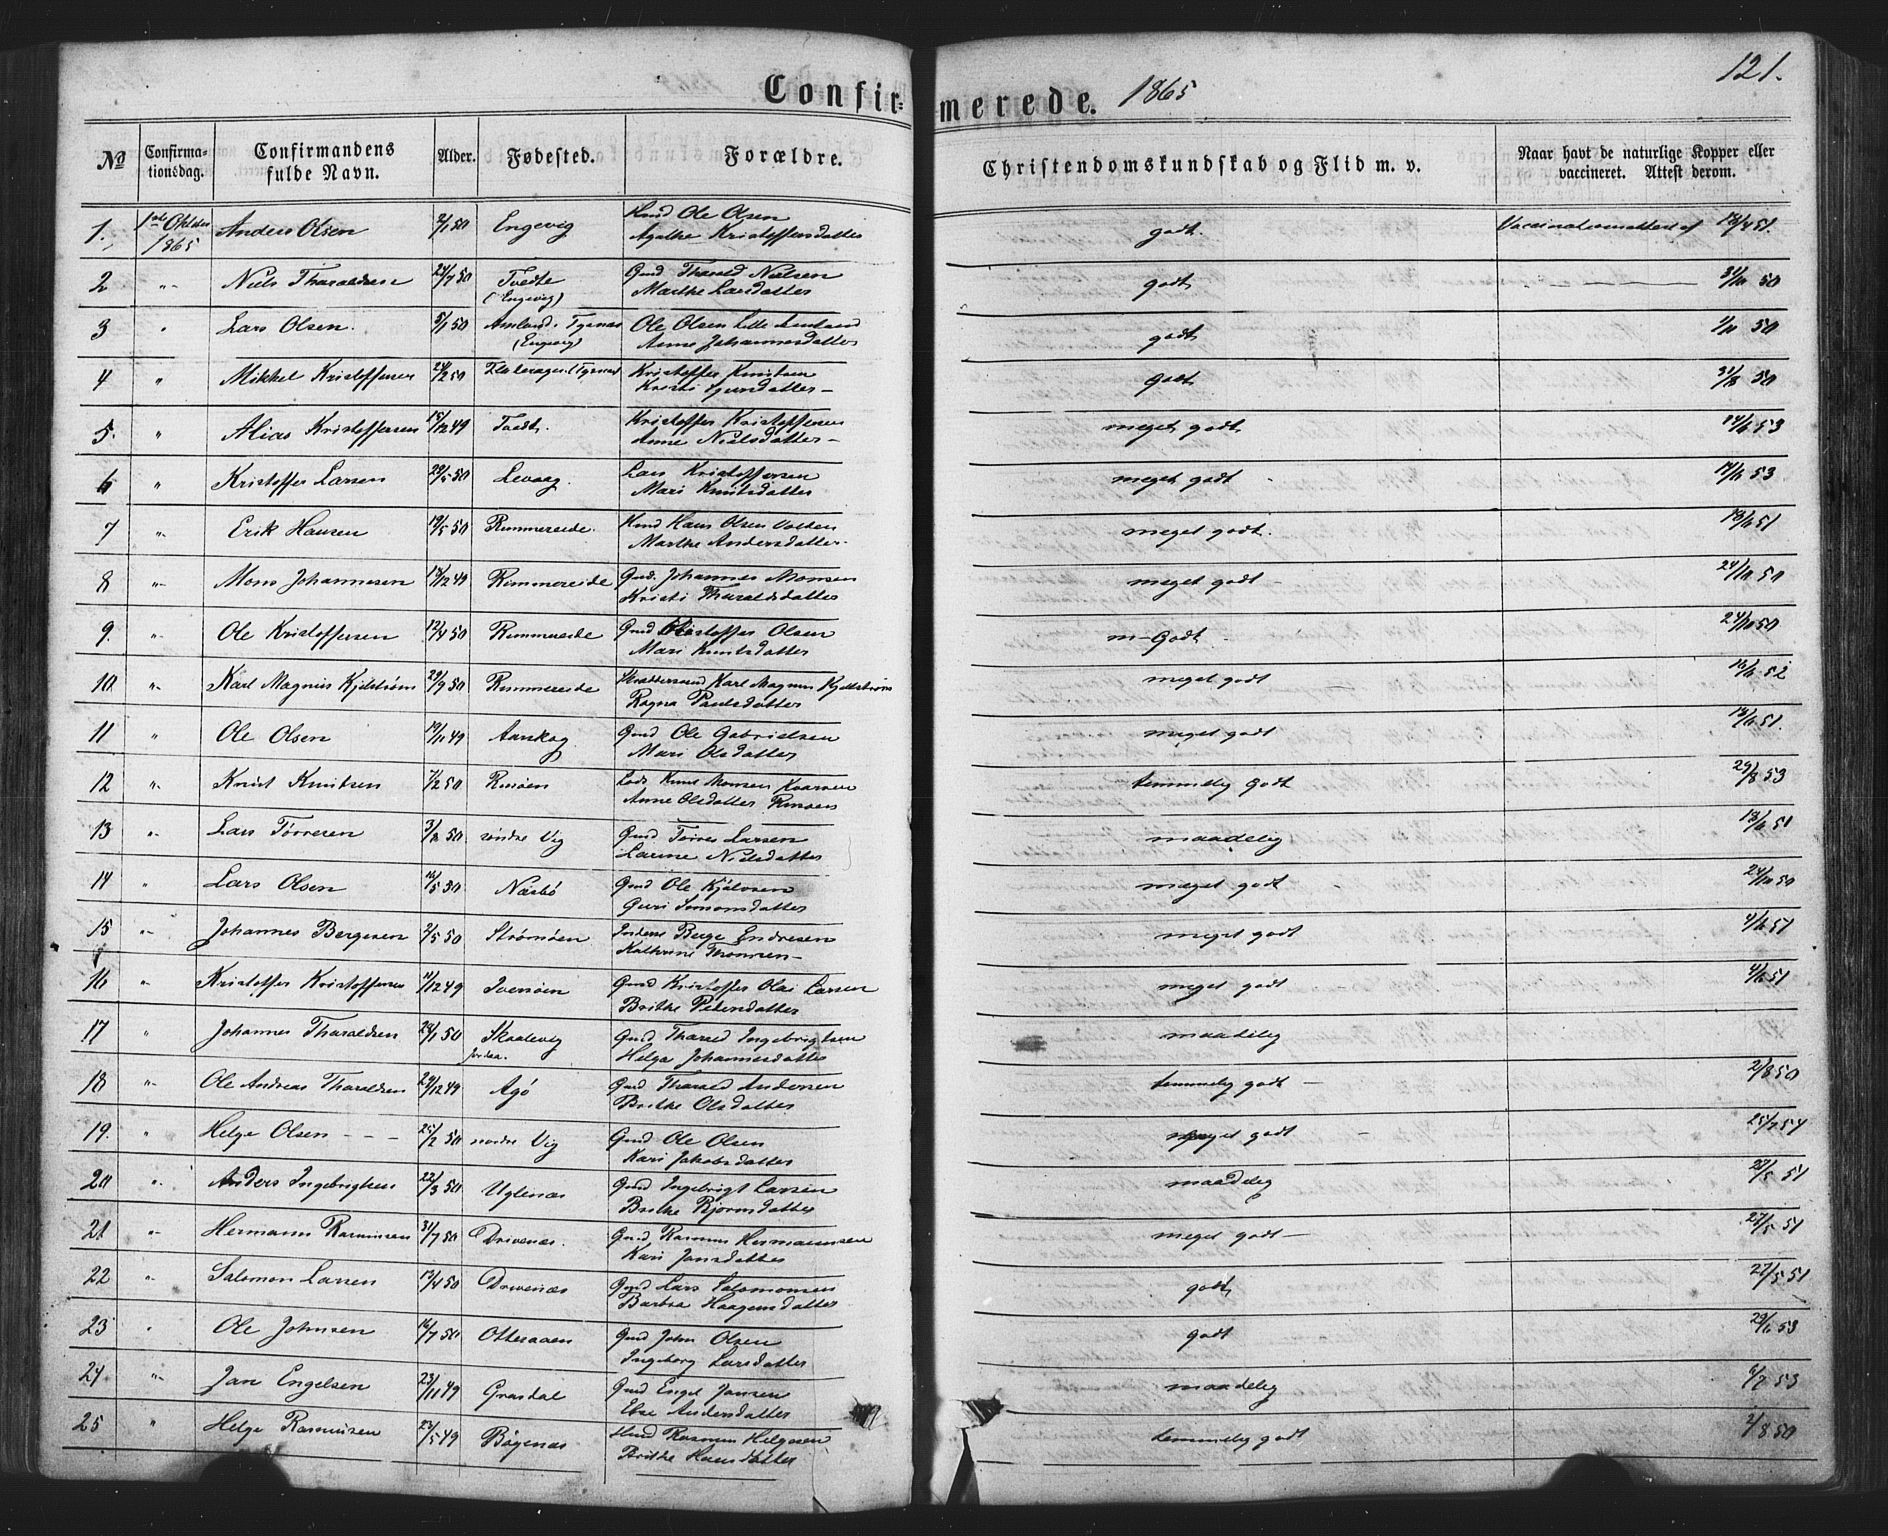 121.
Confir-merede. 1865
No Confirma-tionsdag. Confirmandens fulde Navn. Alder. Fødested. Forældre. Christendomskundskab og Flid m. v. Naar havt de naturlige Kopper eller vaccineret. Attest derom.
1. 1ste Oktober 1865 Anders Olsen 2/1 50 Engevig Hmd Ole Olsen godt. Vaccinationsattest af 12/4 51.
Agathe Kristoffersdatter
2 " Niels Tharaldsen 24/7 50 Tvedte (Engevig) Gmd Tharald Nielsen godt 31/10 50
Marthe Larsdatter
3 " Lars Olsen 5/1 50 Amland. Tysnæs (Engevig) Ole Olsen Lille Amland godt 1/11 50
Anne Johannesdatter
4 " Mikkel Kristoffersen 24/2 50 Kristoffer Knutsen godt 31/8 50
5. " Alias Kristoffersen 15/12 49 Tvedt. Kristoffer Kristoffersen meget godt 14/6 53
Anne Nielsdatter
6 " Kristoffer Larsen Levaag. Lars Kristoffersen meget godt 14/6 53
Mari Knutsdatter
7 " Erik Hansen 19/5 50 Rimmereide. Hmd Hans Olsen Volden meget godt. 13/6 51
Marthe Andersdatter
8 " Mons Johannesen 14/12 49 Rimmereide Gmd. Johannes Monsen meget godt 24/10 50
Kristi Tharaldsdatter
9. " Ole Kristoffersen 12/4 50 Rimmereide Gmd Kristoffer Olsen m-Godt 24/10 50
Mari Knutsdatter
10 " Karl Magnus Kjelstrøm 29/9 50 Rimmereide Karl Magnus Kjellstrøm meget godt 16/6 52
Ragna Paulsdatter
11 " Ole Olsen 19/11 49 Aarskog Gmd Ole Gabrielsen meget godt 13/6 51.
Mari Olsdatter
12 " Knut Knutsen 7/2 50 Rinøen Lods Knut Monsen temmelig godt 29/8 53
Anne Olsdatter Rinøen
13 " Lars Tørresen 3/8 50 søndre Vig Gmd Tørres Larsen maadelig 13/6 51
Larine Nielsdatter
14 " Lars Olsen Næsbø Gmd Ole Kjølvsen meget godt 24/10 50
Guri Simonsdatter
15 " Johannes Bergesen 2/5 50 Strømøen Inderst Berge Endresen meget godt 4/6 51
Kathrine Thomsen
16 " Kristoffer Kristoffersen 11/12 49 Iversøen Gmd Kristoffer Olai Larsen meget godt 4/6 51
Brithe Petersdatter
17 " Johannes Tharaldsen 28/1 50 Skaalevig Gmd Tharald Ingebrigtsen maadelig
Helga Johannesdatter
18 " Ole Andreas Tharaldsen 29/12 49 Agø Gmd Tharald Andersen temmelig godt 2/8 50
Brithe Olsdatter
19. " Helge Olsen 25/2 50 nordre Vig Gmd Ole Olsen meget godt 25/7 54
Kari Jakobsdatter
20 " Anders Ingebrigtsen 22/3 50 Uglenæs Gmd Ingebrigt Larsen maadelig 27/5 51
Brithe Bjørnsdatter
21 " Hermann Rasmusen 31/7 50 Drivenæs. Gmd Rasmus Hermannsen meget godt 27/5 51
Kari Jansdatter
22 " Salomon Larsen 13/4 50 Drivenæs Gmd Lars Salomonsen godt 27/5 51
Barbra Haagensdatter
23 " Ole Johnsen 16/7 50 Otteraaen Gmd John Olsen godt 29/6 53
Ingeborg Larsdatter
24 " Jan Engelsen 23/11 49 Grasdal Gmd Engel Jansen maadelig 6/7 53
Else Andersdatter
25 " Helge Rasmusen 23/5 49 Bøgenæs Hmd Rasmus Helgesen temmelig godt 2/8 50
Brithe Hansdatter